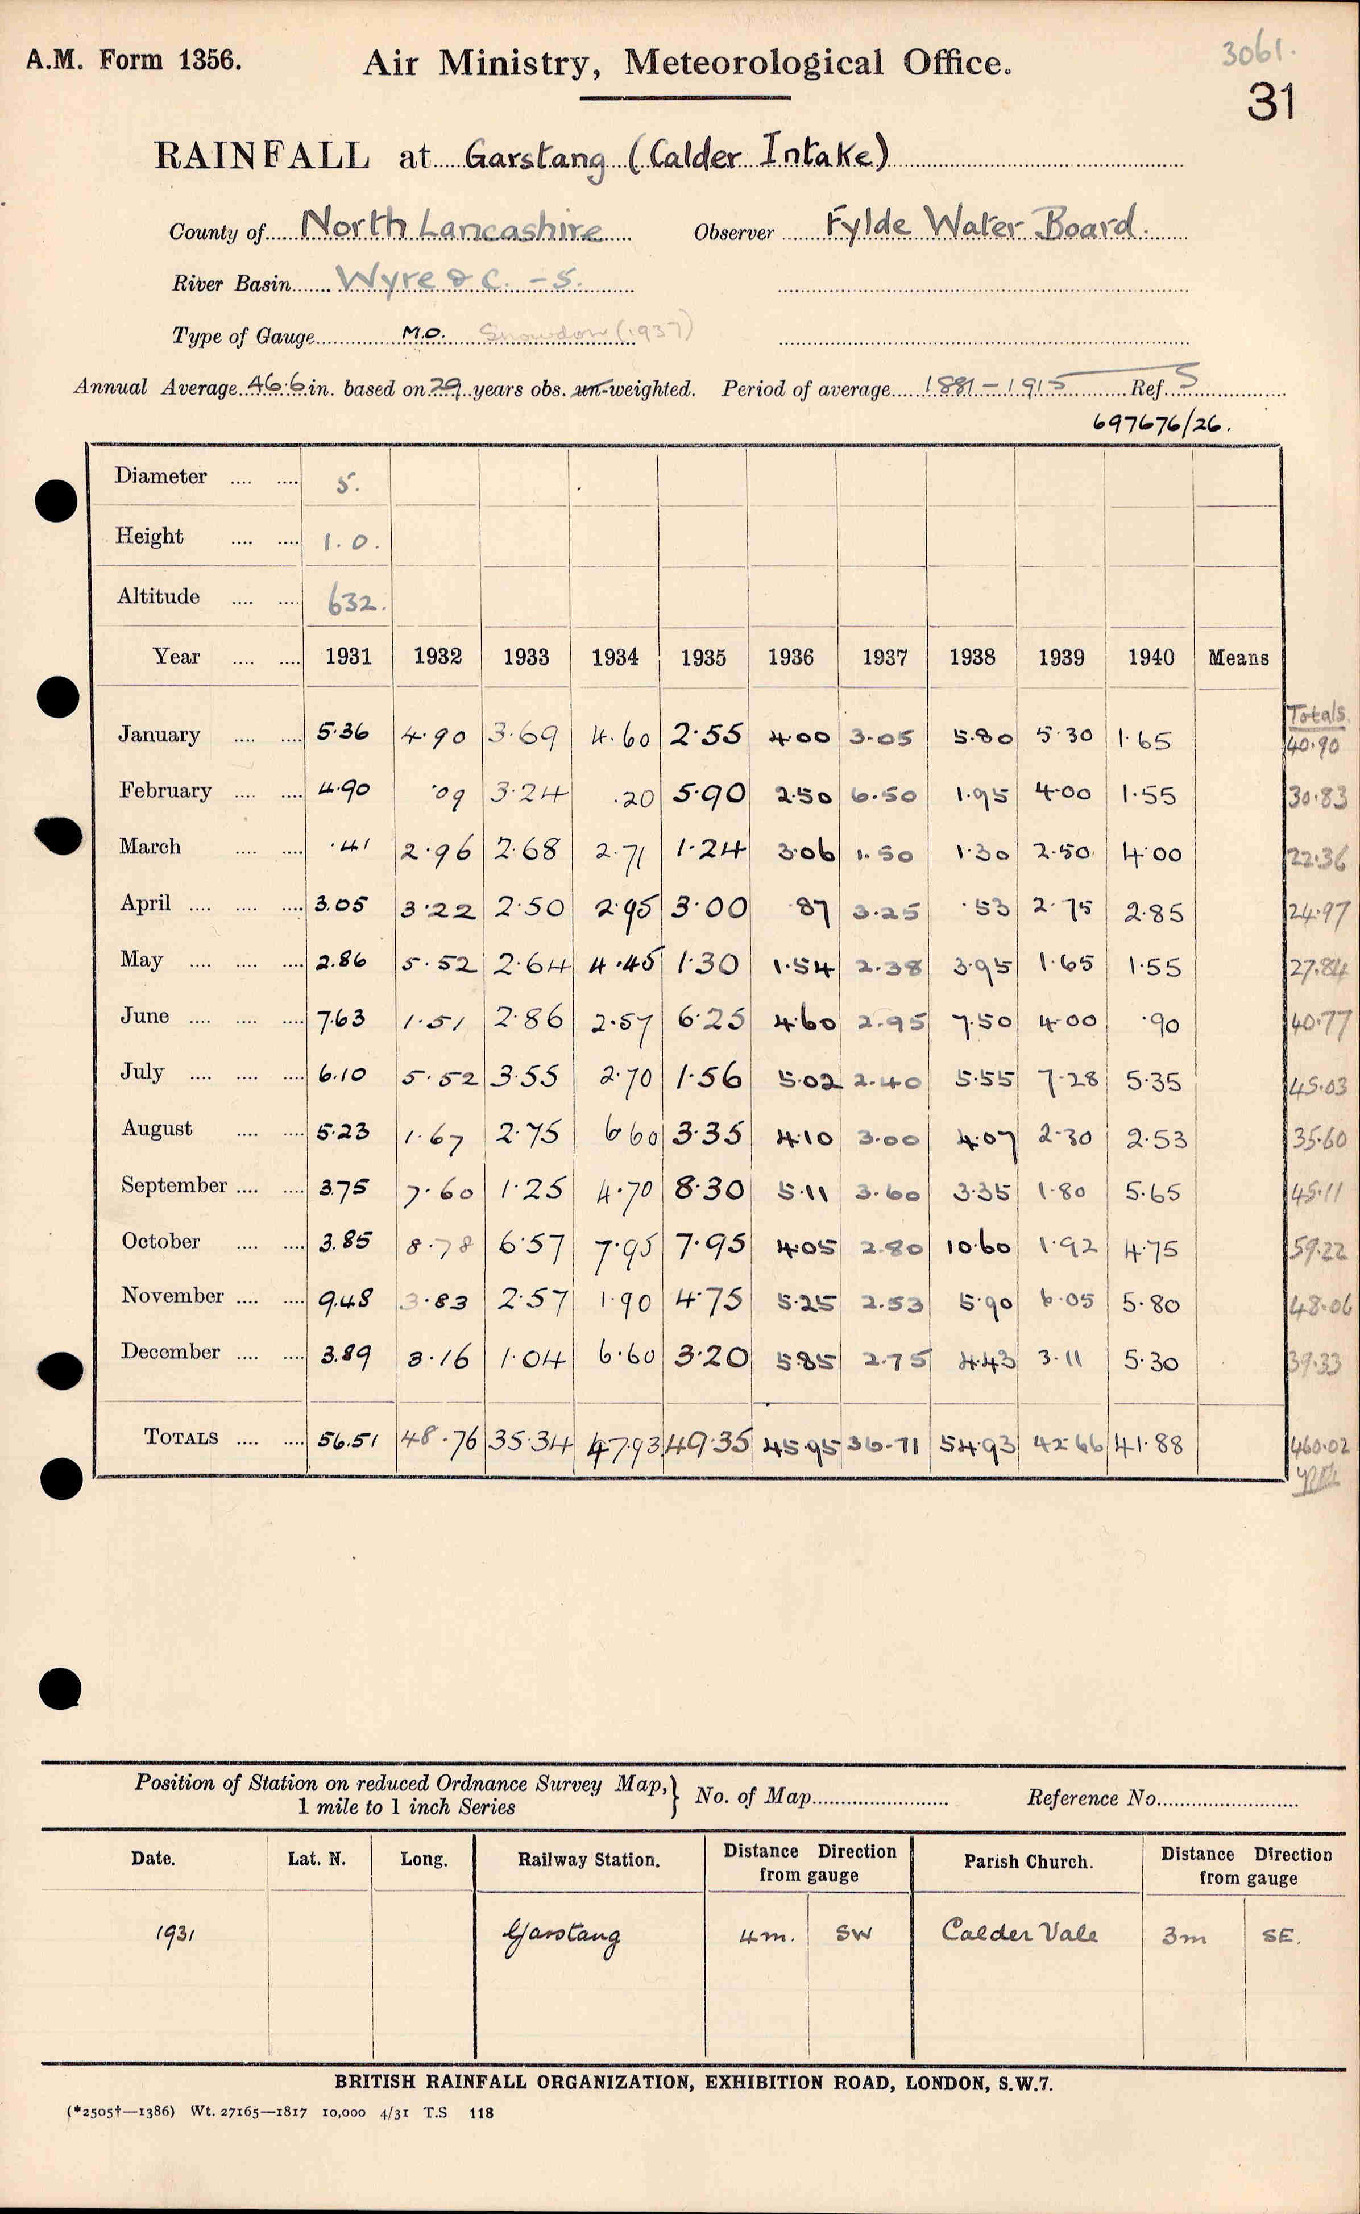 A.M. Form 1356.
Air Ministry, Meteorological Office.
3061.
31
RAINFALL at Garstang (Calder Intake)
County of North Lancashire Observer Fylde Water Board.
River Basin Wyre & C. - 5.
Type of Gauge M.O. Snowdon (1937)
Annual Average 46.6 in. based on 29 years obs. un-weighted. Period of average 1881-1915 Ref. 5
697676/26.
Diameter .... .... 5.
Height .... .... 1.0.
Altitude .... .... 632.
Year .... .... 1931 1932 1933 1934 1935 1936 1937 1938 1939 1940 Means
Totals.
January .... .... 5.36 4.90 3.69 4.60 2.55 4.00 3.05 5.80 5.30 1.65 40.90
February .... .... 4.90 .09 3.24 .20 5.90 2.50 6.50 1.95 4.00 1.55 30.83
March .... .... .41 2.96 2.68 2.71 1.24 3.06 1.50 1.30 2.50 4.00 22.36
April .... .... .... 3.05 3.22 2.50 2.95 3.00 .87 3.25 .53 2.75 2.85 24.97
May .... .... .... 2.86 5.52 2.64 4.45 1.30 1.54 2.38 3.95 1.65 1.55 27.84
June .... .... .... 7.63 1.51 2.86 2.57 6.25 4.60 2.95 7.50 4.00 .90 40.77
July .... .... .... 6.10 5.52 3.55 2.70 1.56 5.02 2.40 5.55 7.28 5.35 45.03
August .... .... 5.23 1.67 2.75 6.60 3.35 4.10 3.00 4.07 2.30 2.53 35.60
September .... .... 3.75 7.60 1.25 4.70 8.30 5.11 3.60 3.35 1.80 5.65 45.11
October .... .... 3.85 8.78 6.57 7.95 7.95 4.05 2.80 10.60 1.92 4.75 59.22
November .... .... 9.48 3.83 2.57 1.90 4.75 5.25 2.53 5.90 6.05 5.80 48.06
December .... .... 3.89 3.16 1.04 6.60 3.20 5.85 2.75 4.43 3.11 5.30 39.33
TOTALS .... .... 56.51 48.76 35.34 47.93 49.35 45.95 36.71 54.93 42.66 41.88 460.02
Position of Station on reduced Ordnance Survey Map,} No. of Map Reference No.
1 mile to 1 inch Series
Date. Lat. N. Long. Railway Station. Distance Direction Parish Church. Distance Direction
from gauge from gauge
1931 Garstang 4m. SW Calder Vale 3m SE.
BRITISH RAINFALL ORGANIZATION, EXHIBITION ROAD, LONDON, S.W.7.
(*2505†—1386) Wt. 27165—1817 10,000 4/31 T.S 118